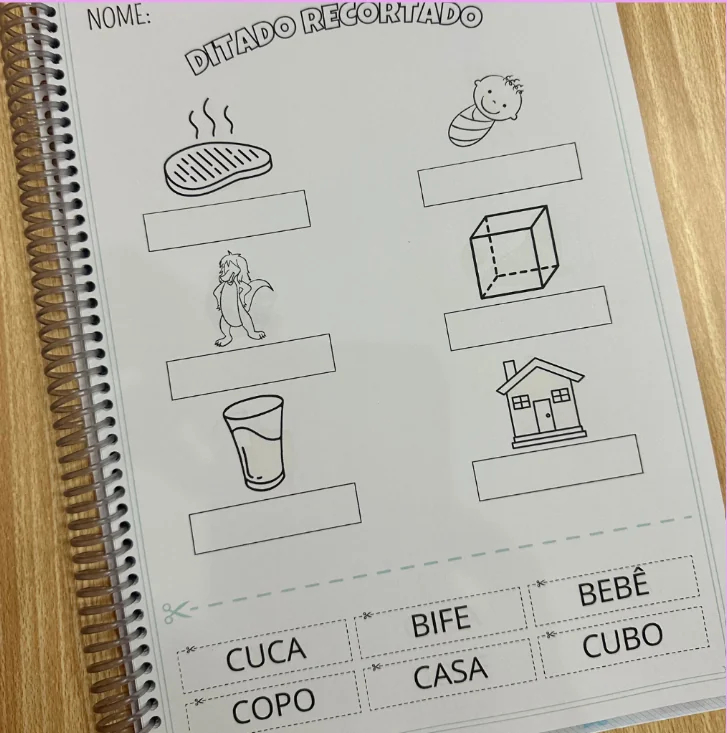 NOME:
DITADO RECORTADO
CUCA BIFE BEBÊ
COPO CASA CUBO